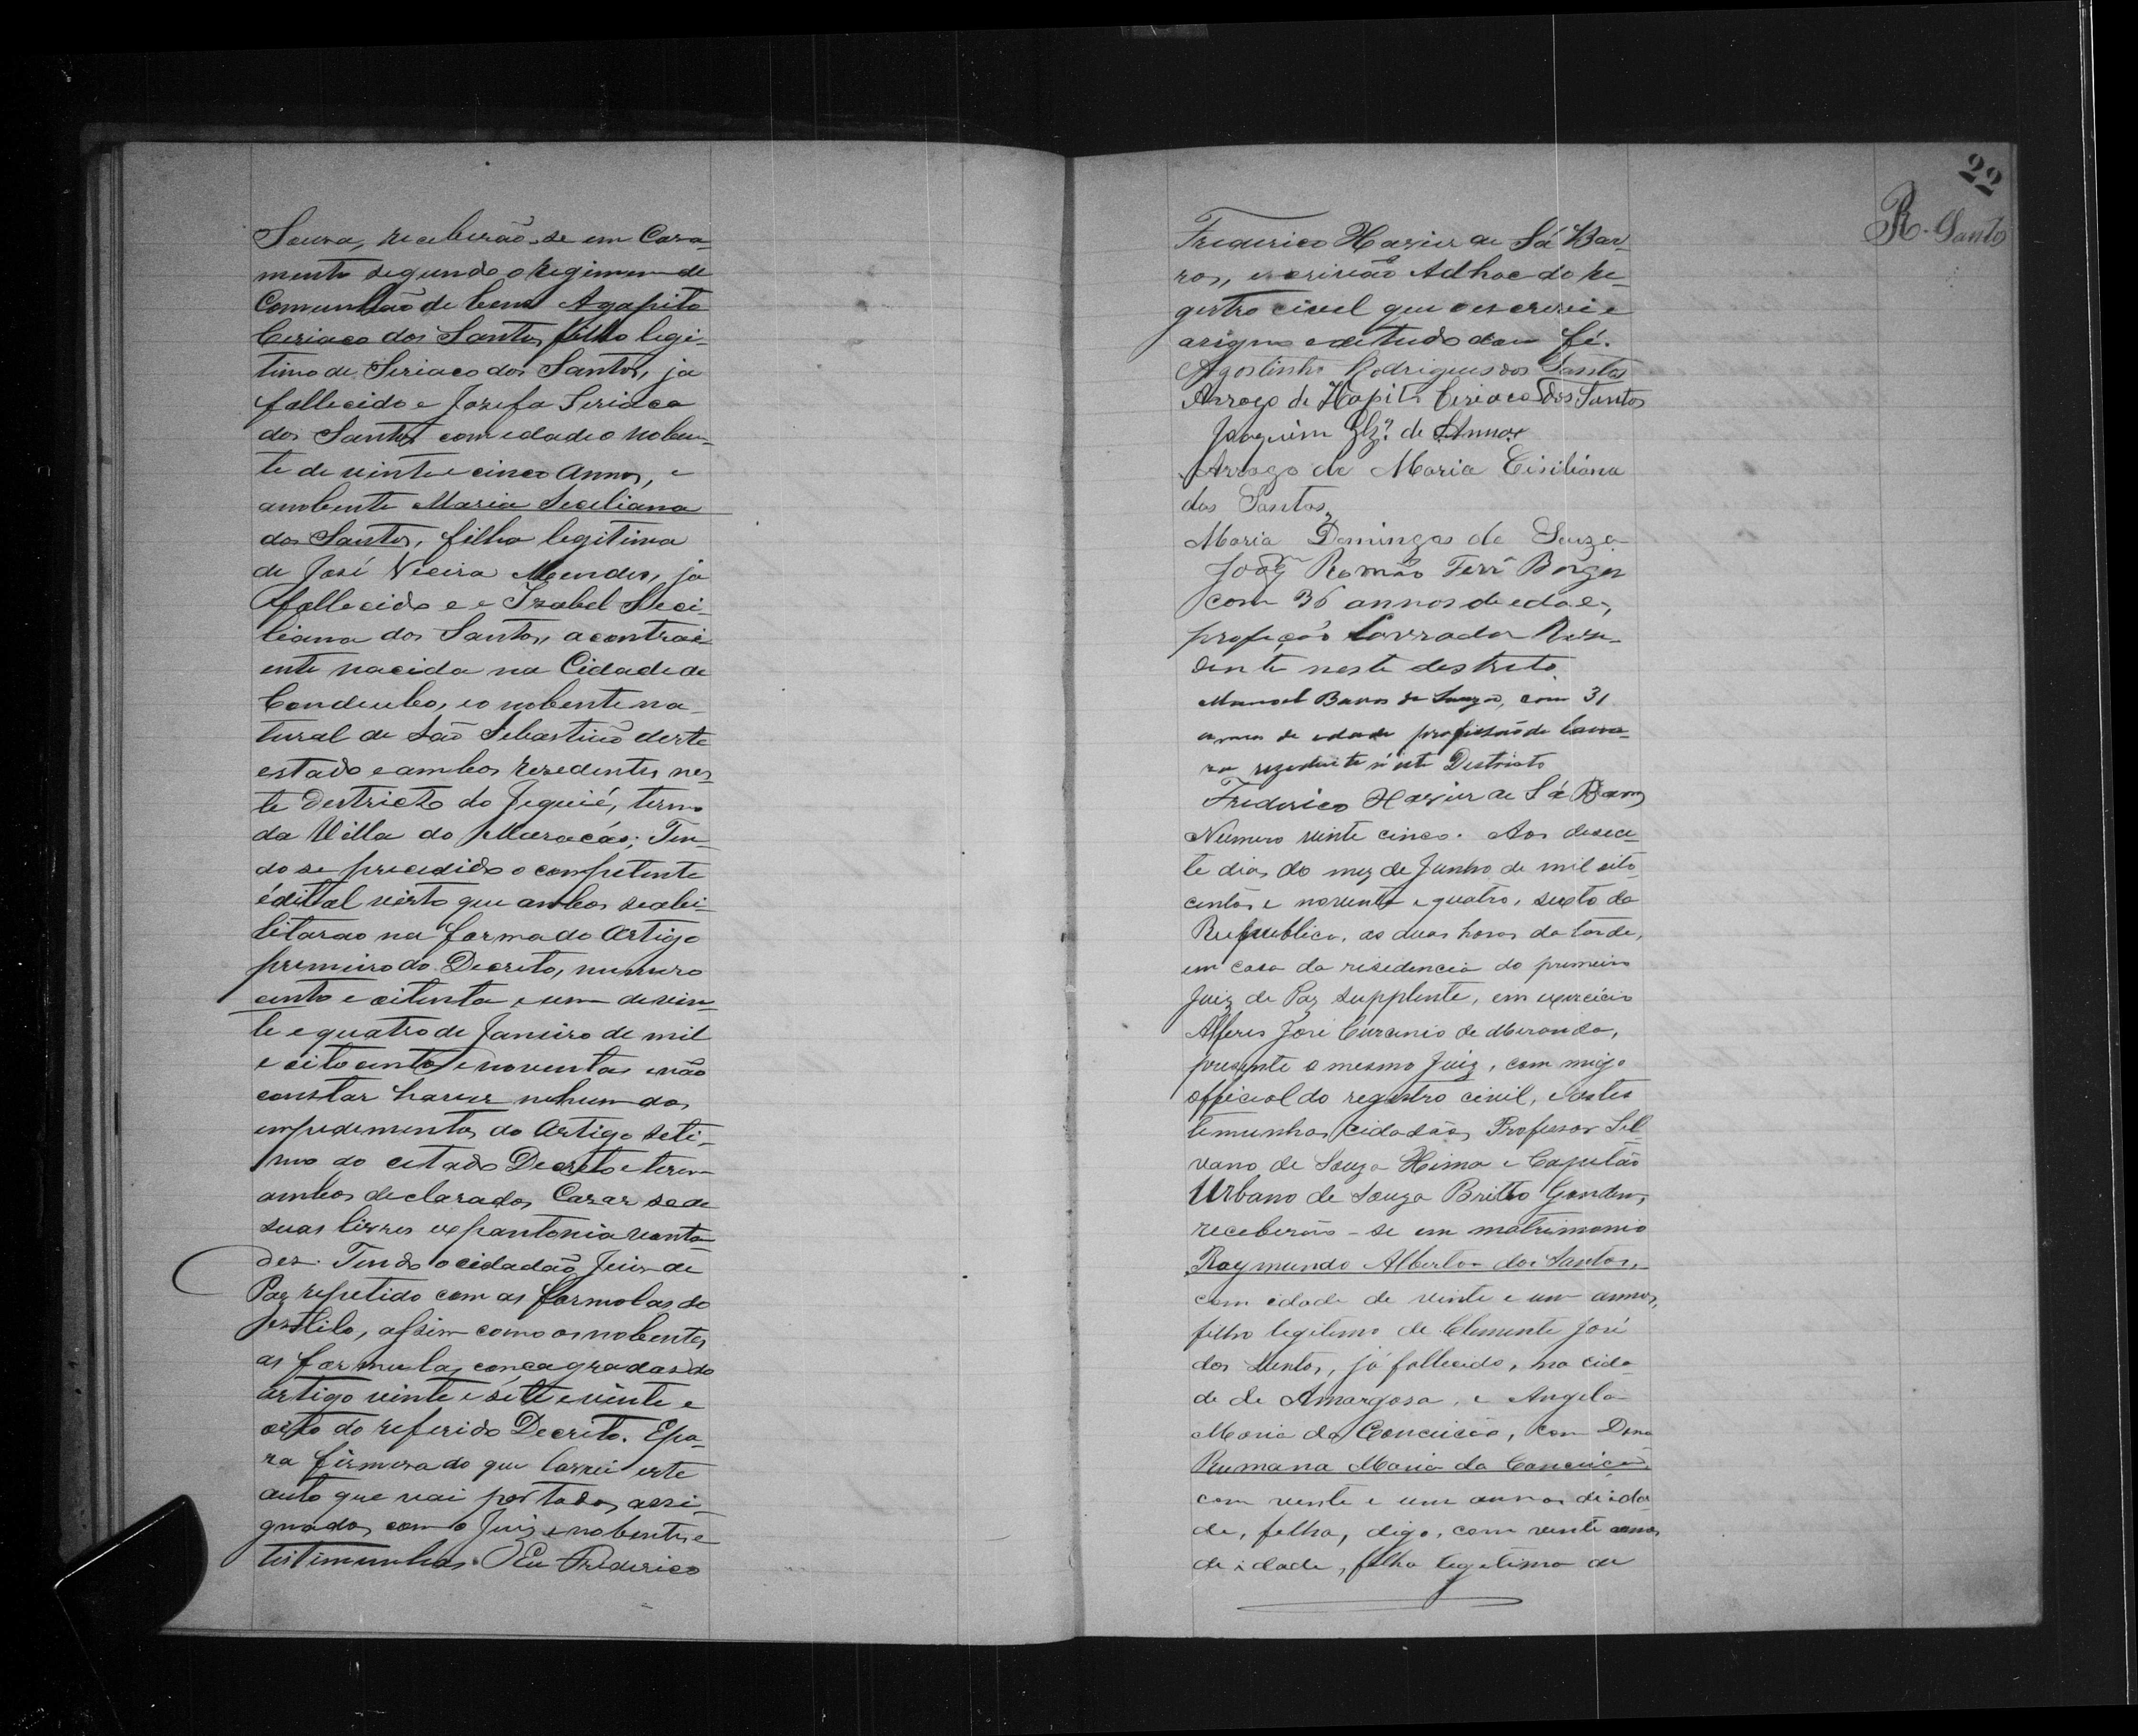 Souza, receberão-se em Casa-
mento segundo o Regimem de
Comunhão de bens Agapito
Ceriaco dos Santos, filho legi-
timo de Seriaco dos Santos, ja
fallecido e Jozefa Seriaca
dos Santos com edade o noben-
te de vinte e cinco annos, e
anobente Maria Seciliana
dos Santos, filha legitima
de José Vieira Mendes, ja
fallecido e e Izabel Seci-
liana dos Santos, a contrai-
ente nacida na Cidade de
Condeuba, e o nobente na-
tural de São Sebastião deste
estado e ambos rezedentes nes-
te destricto do Jequié, termo
da Villa do Maracás; Ten-
do se precedido o competente
édital visto que ambos seabi-
litarao na forma do Artigo
premeiro do Decreto, numero
cento e oitenta e um de vin-
te e quatro de Janeiro de mil
e oito centos e noventa e não
constar haver nehum dos
empedimentos do Artigo seti-
mo do citado Decreto e terem
ambos declarados Cazar se de
suas livres expantonia vonta-
des. Tendo o cidadão Juiz de
Paz repetido com as formolas do
estilo, assim como os nobentes
as formulas concagradas do
artigo vinte e sette e vinte e
oito do referido Decreto. E pa-
ra firmesa do que lavrei este
auto que vai por todos assi-
gnados com o Juiz e nobentes e
testimunhas. Eu Frederico
22
R. Santo
Frederico Xavier de Sá Bar-
ros, escrivão Adhoc do Re-
gestro civel que o escrevi e
asigno e de tudo dou fé.
Agostinho Rodrigues dos Santos
Arrogo de Hapito Ceriaco dos Santos
Joaquim Glz. de
Arrogo de Maria Cisiliana
dos Santos
Maria Domingas de Souza
Romão Ferr Borges
com 36 annos de edae,
profição Lavrador Resi-
dente neste destreto.
Manoel Barros de Souza, com 31
annos de edade profissão de lavra-
rezedente n'este Destricto
Frederico Xavier de Sá Barros
Numero vinte cinco. Aos desese-
te dias do mez de Junho de mil oito-
centos e noventa e quatro, sexto da
Republica, as duas horas da tarde,
em casa da residencia do primeiro
Juiz de Paz supplente, em exercicio
Alferes José Curcinio de Meranda,
presente o mesmo Juiz, com migo
official do registro civil, e as tes
temunhas cidadãos Professor Sil-
vano de Souza Hima e Capitão
Urbano de Souza Britto Gondim,
receberão-se em matrimonio
Raymundo Alberto dos Santos,
com edade de vinte e um annos,
filho legitimo de Clemente José
dos Santos, já fallecido, na cida-
de de Amargosa, e Angela
Maria da Conceicão, com Dona
Rumana Maria da Conceição
com vente e um annos de eda-
de, felha, digo, com vente annos
de idade, filha legitima de